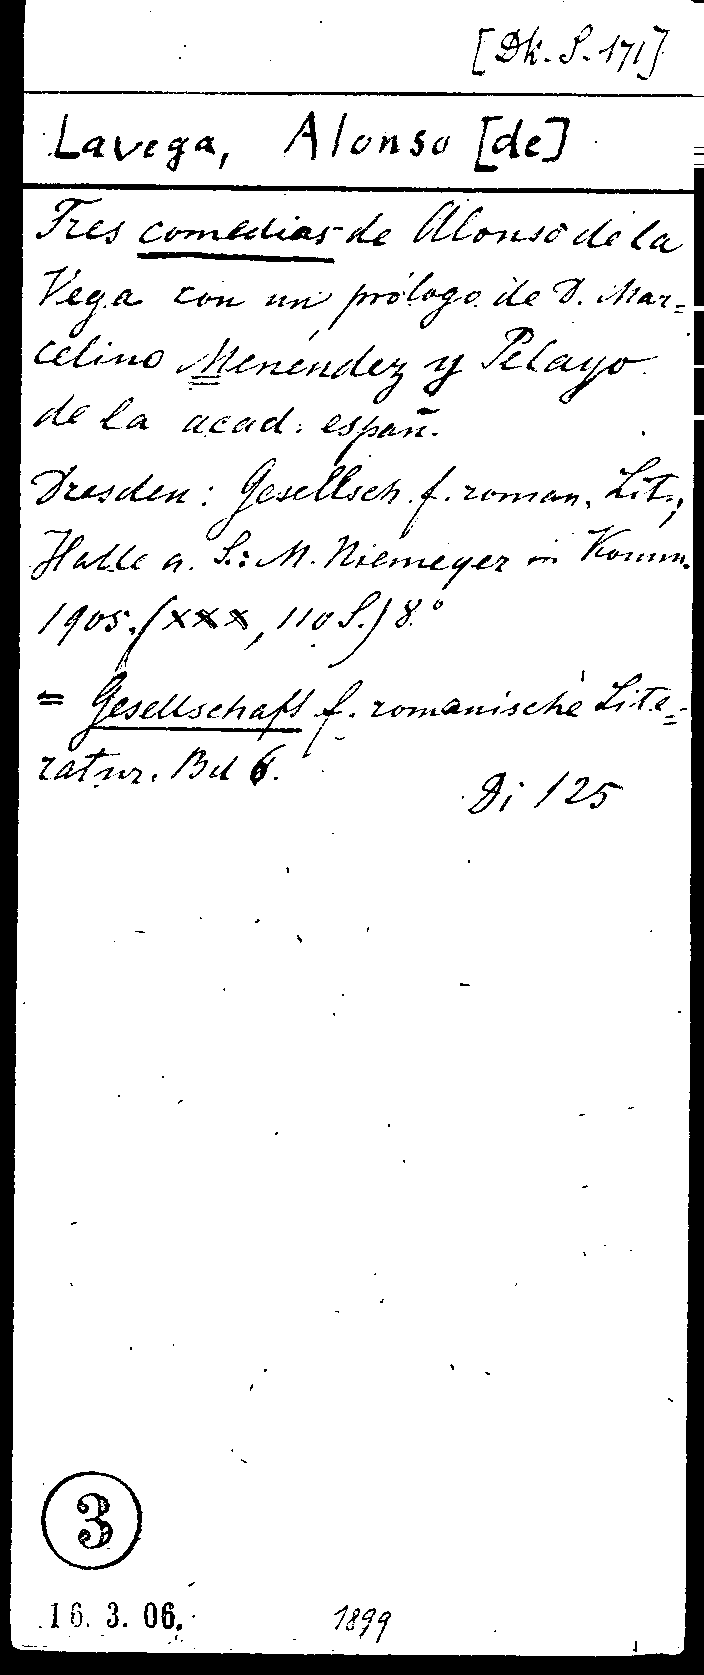 [Dk. S. 171]
Lavega, Alonso [de]
Tres comedias de Alonso de la
Vega con un prólogo de D. Mar=
celino Menéndez y Pelayo
de la acad. españ.
Dresden: Gesellsch. f. roman. Lit.;
Halle a. S.: M. Niemeyer in Komm.
1905. (XXX, 110 S.) 8.°
= Gesellschaft f. romanische Lite=
ratur. Bd 6.
Di 125
3
16. 3. 06.
1899